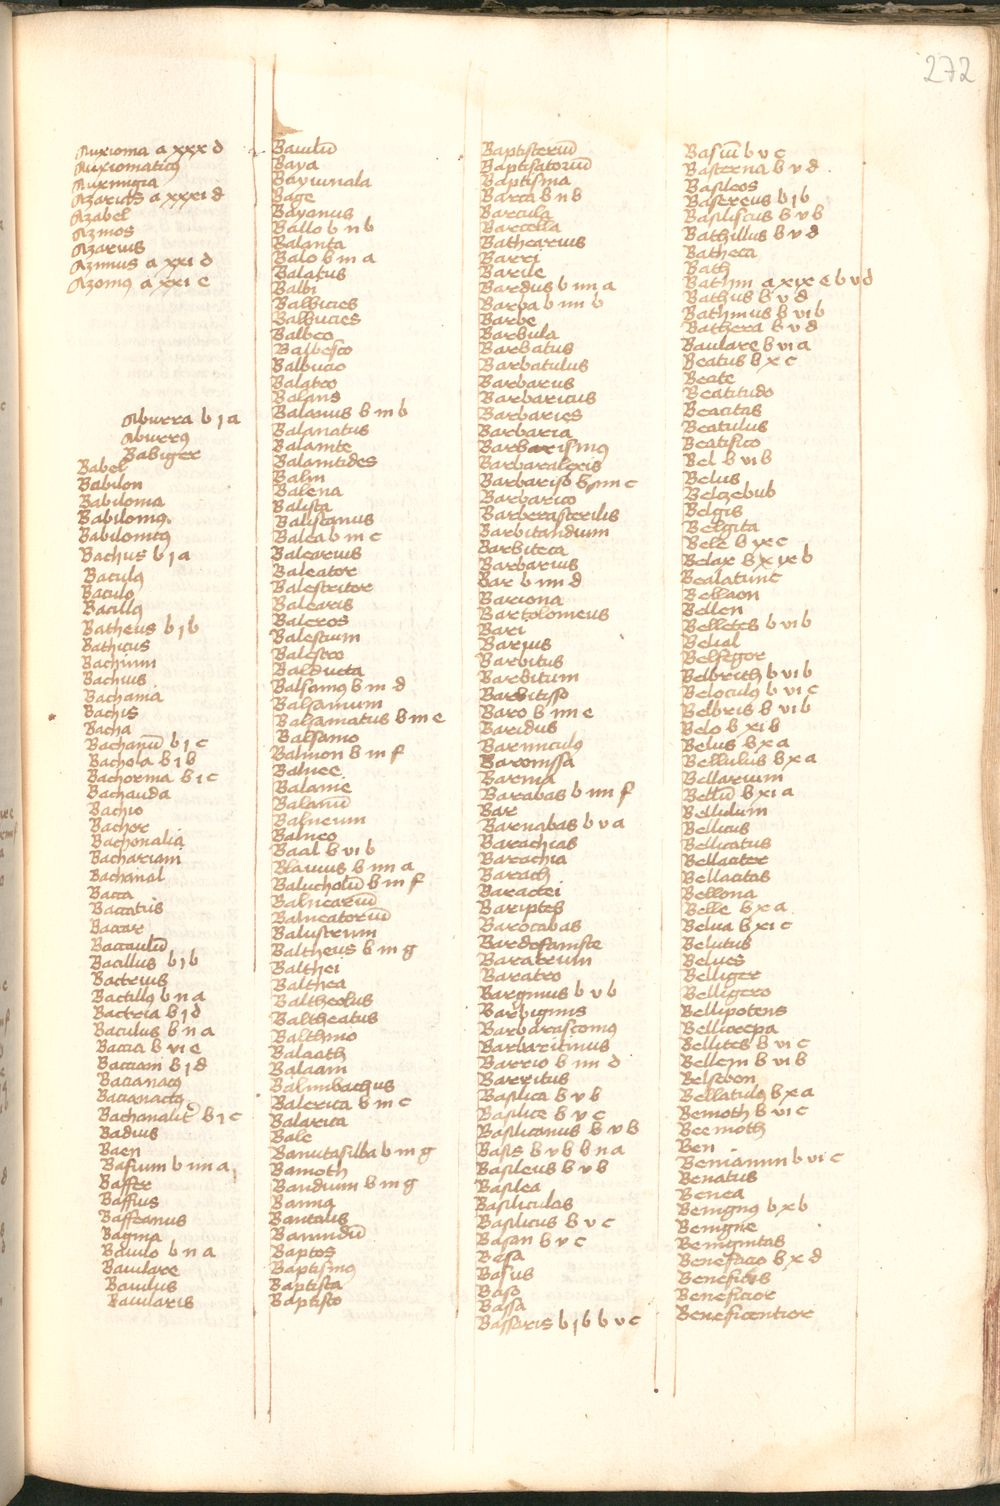 272
Auxioma a xxx d
Auxiomaticꝰ
Auxungia
Azarias a xxxi d
Azabel
Azmos
Azarius
Azimus a xxi d
Azomꝰ a xxi e
Aburra b j a
Aburrꝰ
Babiger
Babel
Babilon
Babilonia
Babilonius
Babilonicꝰ
Bachus b j a
Baculꝰ
Baculo
Bacillꝰ
Batheus b j b
Bathicus
Bachinni
Bachius
Bachania
Bachis
Bacha
Bachanū b j c
Bachola b j b
Bachorma b j c
Bachauda
Bachio
Bachor
Bachonalia
Bachariam
Bachanal
Bacca
Baccatus
Baccar
Baccaulū
Bacillus b j b
Bactrius
Bactillꝰ b ii a
Bactria b j d
Baculus b ii a
Baccia b vi e
Bacciam b j d
Bacianacꝰ
Bacianactꝰ
Bachanalit' b j c
Badius
Baen
Bafium b iiii a
Baffer
Baffius
Baffeanus
Bagma
Baiulo b ii a
Baiulare
Baiulus
Baiularis
Baiulū
Baya
Bayiunala
Bage
Bayonus
Ballo b ii b
Balanta
Balo b iii a
Balatus
Balbi
Balbicies
Balbucies
Balbeo
Balbesco
Balbucio
Balatro
Balans
Balanus b iii b
Balanatus
Balamte
Balamtides
Balin
Balena
Balista
Balistanus
Balea b iii c
Balearius
Baleator
Balestritor
Balearis
Baleros
Balestium
Balestro
Balducta
Balsamꝰ b iii d
Balsamum
Balsamatus b iii e
Balsamo
Balinon b iii f
Balnee
Balanie
Balanū
Balneum
Balneo
Baal b vi b
Blauius b iiii a
Balucholū b iii f
Balnearū
Balneatoriū
Balustrum
Baltheus b iii g
Balthei
Balthea
Baltheolus
Baltheatus
Balthmo
Balaath
Balaam
Balimbachus
Balerica b iii c
Balarica
Bale
Banutasilba b iii g
Bamoth
Bandium b iii g
Banna
Bantalis
Bannidū
Baptos
Baptismꝰ
Baptista
Baptisto
Baptisteriū
Baptisatoriū
Baptisma
Barca b ii b
Barcula
Barcella
Bathearius
Barri
Barile
Bardus b iiii a
Barba b iiii b
Barbe
Barbula
Barbatus
Barbatulus
Barbarus
Barbaricus
Barbaries
Barbaria
Barbarismꝰ
Barbaralexis
Barbariso b iiii c
Barbarico
Barberasterilis
Barbitandium
Barbiteca
Barbarius
Bar b iiii d
Bariona
Bartolomeus
Bari
Barius
Barbitus
Barbitum
Barbitisso
Baro b iiii e
Baridus
Barunculꝰ
Baronissa
Barma
Barabas b iiii f
Bar
Barnabas b v a
Barachias
Barachia
Barach
Baractei
Bariptes
Barocabas
Bardofamste
Baratrum
Baratro
Bargmus b v b
Barbigmis
Barbarastomꝰ
Barbaricinus
Barrio b iiii d
Barritus
Basilica b v b
Basilice b v c
Basilicanus b v b
Basis b v b b ii a
Basileus b v b
Basilea
Basiliculas
Basilicus b v c
Basan b v c
Besa
Basus
Baso
Bassa
Bassaris b j b b v c
Basiū b v c
Basterna b v d
Basileos
Basereus b j b
Basiliscus b v b
Bathillus b v d
Batheca
Bath
Bathin a xix e b v d
Bathus b v d
Bathinius b vi b
Bathera b v d
Baulare b vi a
Beatus b x c
Beate
Beatitudo
Beacitas
Beatulus
Beatifico
Bel b vi b
Belus
Belzebub
Belgis
Belgita
Bele b ix c
Belax b x ix b
Bealatunc
Bellaon
Bellen
Belletes b vi b
Belial
Belsegor
Belbrith b vi b
Beloculꝰ b vi c
Belbris b vi b
Belo b xi b
Belus b x a
Bellulus b x a
Bellarium
Bellū b xi a
Bellulum
Bellicus
Bellicatus
Bellaater
Bellacitas
Bellona
Belle b x a
Belua b xi c
Belutus
Belues
Belliger
Belligero
Bellipotens
Bellicrepa
Bellites b vi c
Bellem b vi b
Belseon
Bellatulꝰ b x a
Bemoth b vi c
Beemoth
Ben
Beniamin b vi c
Benatus
Benea
Benignꝰ b x b
Benigne
Benignitas
Benefacio b x d
Beneficus
Beneficior
Beneficentior